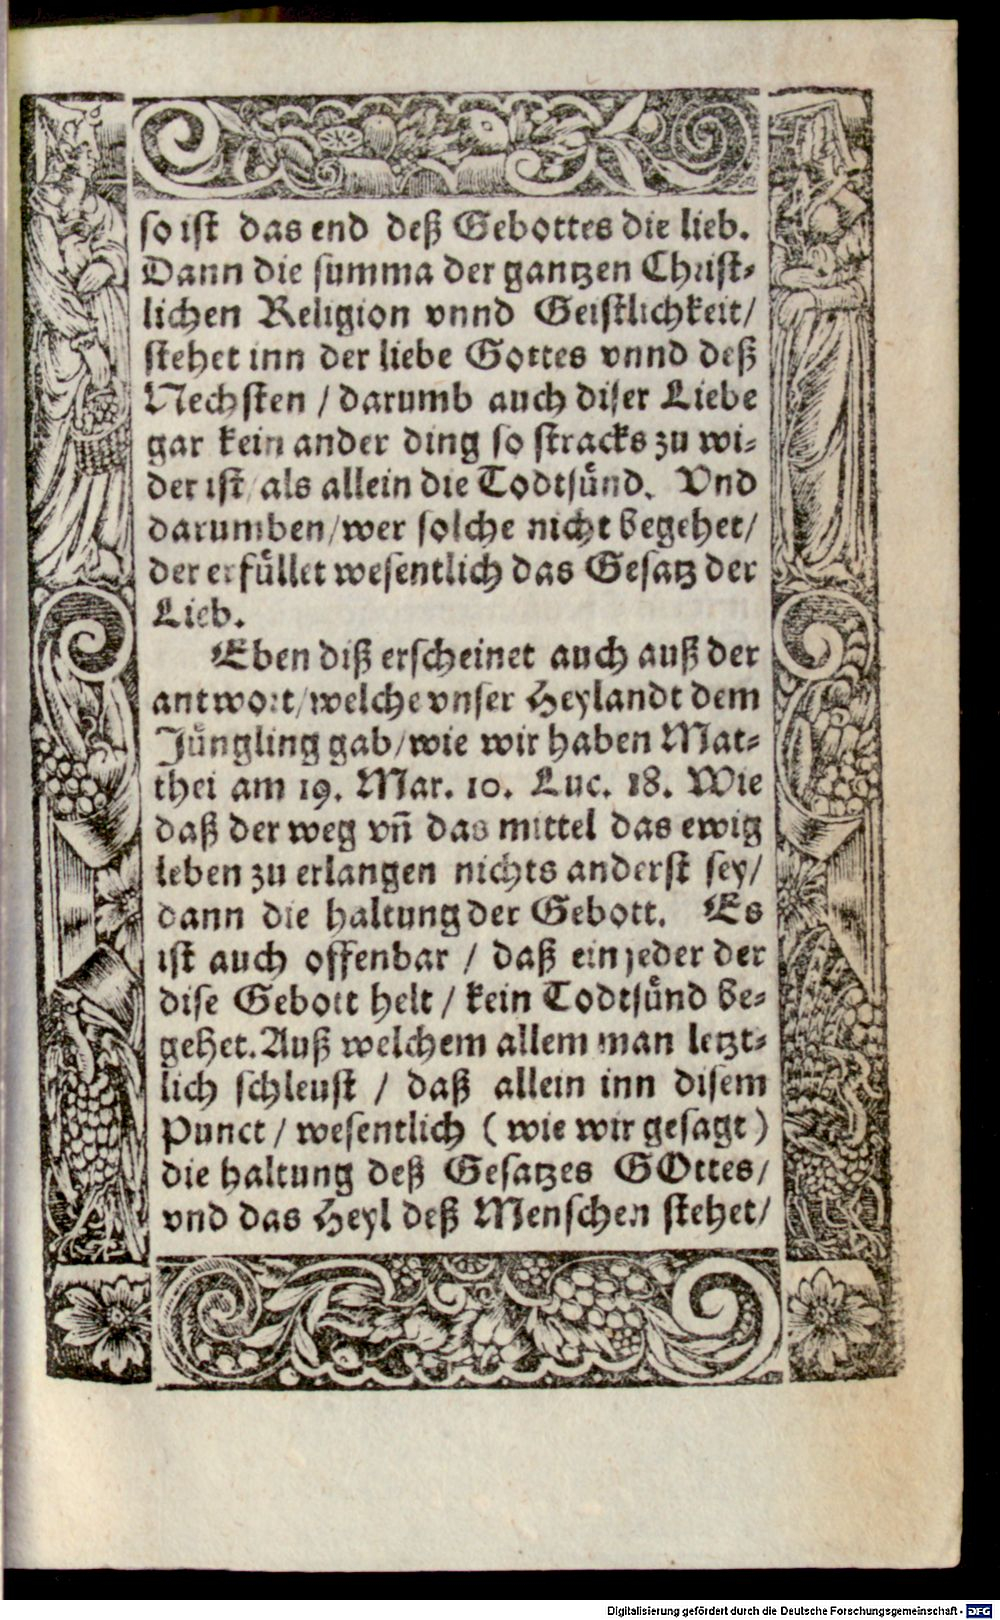 so ist das end deß Gebottes die lieb.
Dann die summa der gantzen Christ-
lichen Religion vnnd Geistlichkeit/
stehet inn der liebe Gottes vnnd deß
Nechsten / darumb auch diser Liebe
gar kein ander ding so stracks zu wi-
der ist/ als allein die Todtsünd. Vnd
darumben/wer solche nicht begehet/
der erfüllet wesentlich das Gesatz der
Lieb.
Eben diß erscheinet auch auß der
antwort/welche vnser Heylandt dem
Jüngling gab/wie wir haben Mat-
thei am 19. Mar. 10. Luc. 18. Wie
daß der weg vñ das mittel das ewig
leben zu erlangen nichts anderst sey/
dann die haltung der Gebott. Es
ist auch offenbar / daß ein jeder der
dise Gebott helt / kein Todtsünd be-
gehet. Auß welchem allem man letzt-
lich schleust / daß allein inn disem
Punct / wesentlich ( wie wir gesagt )
die haltung deß Gesatzes GOttes/
vnd das Heyl deß Menschen stehet/
Digitalisierung gefördert durch die Deutsche Forschungsgemeinschaft - DFG